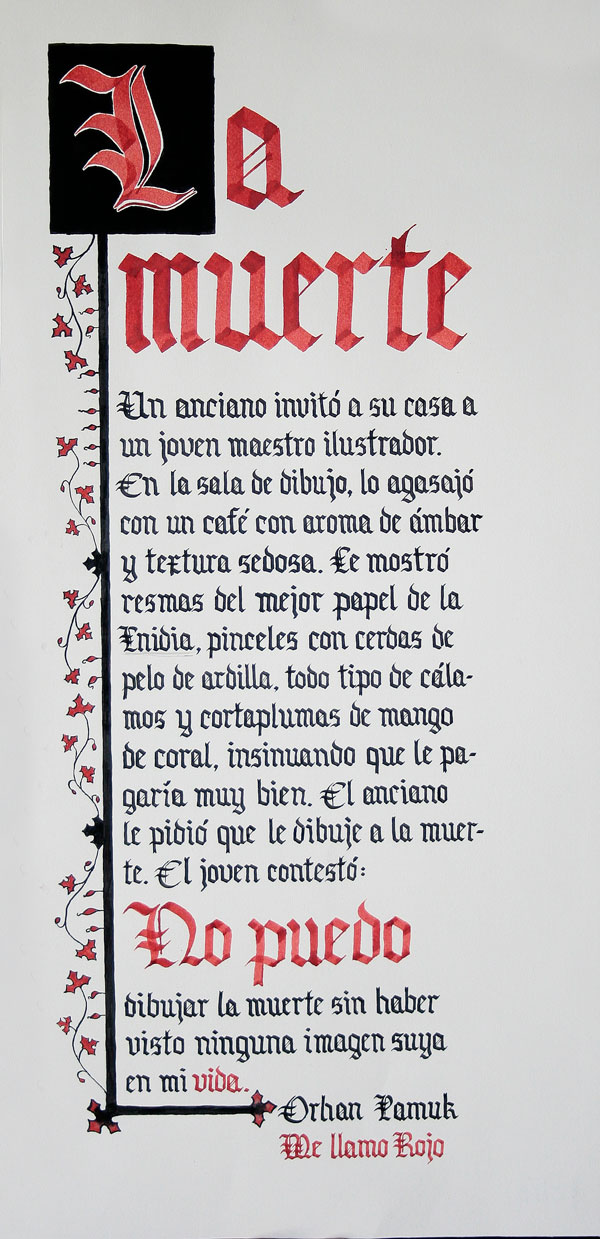 La
muerte
Un anciano invitó a su casa a
un joven maestro ilustrador.
En la sala de dibujo, lo agasajó
con un café con aroma de ámbar
y textura sedosa. Le mostró
resmas del mejor papel de la
Inidia, pinceles con cerdas de
pelo de ardilla, todo tipo de cála-
mos y cortaplumas de mango
de coral, insinuando que le pa-
garía muy bien. El anciano
le pidió que le dibuje a la muer-
te. El joven contestó:
No puedo
dibujar la muerte sin haber
visto ninguna imagen suya
en mi vida.
Orhan Pamuk
Me llamo Rojo